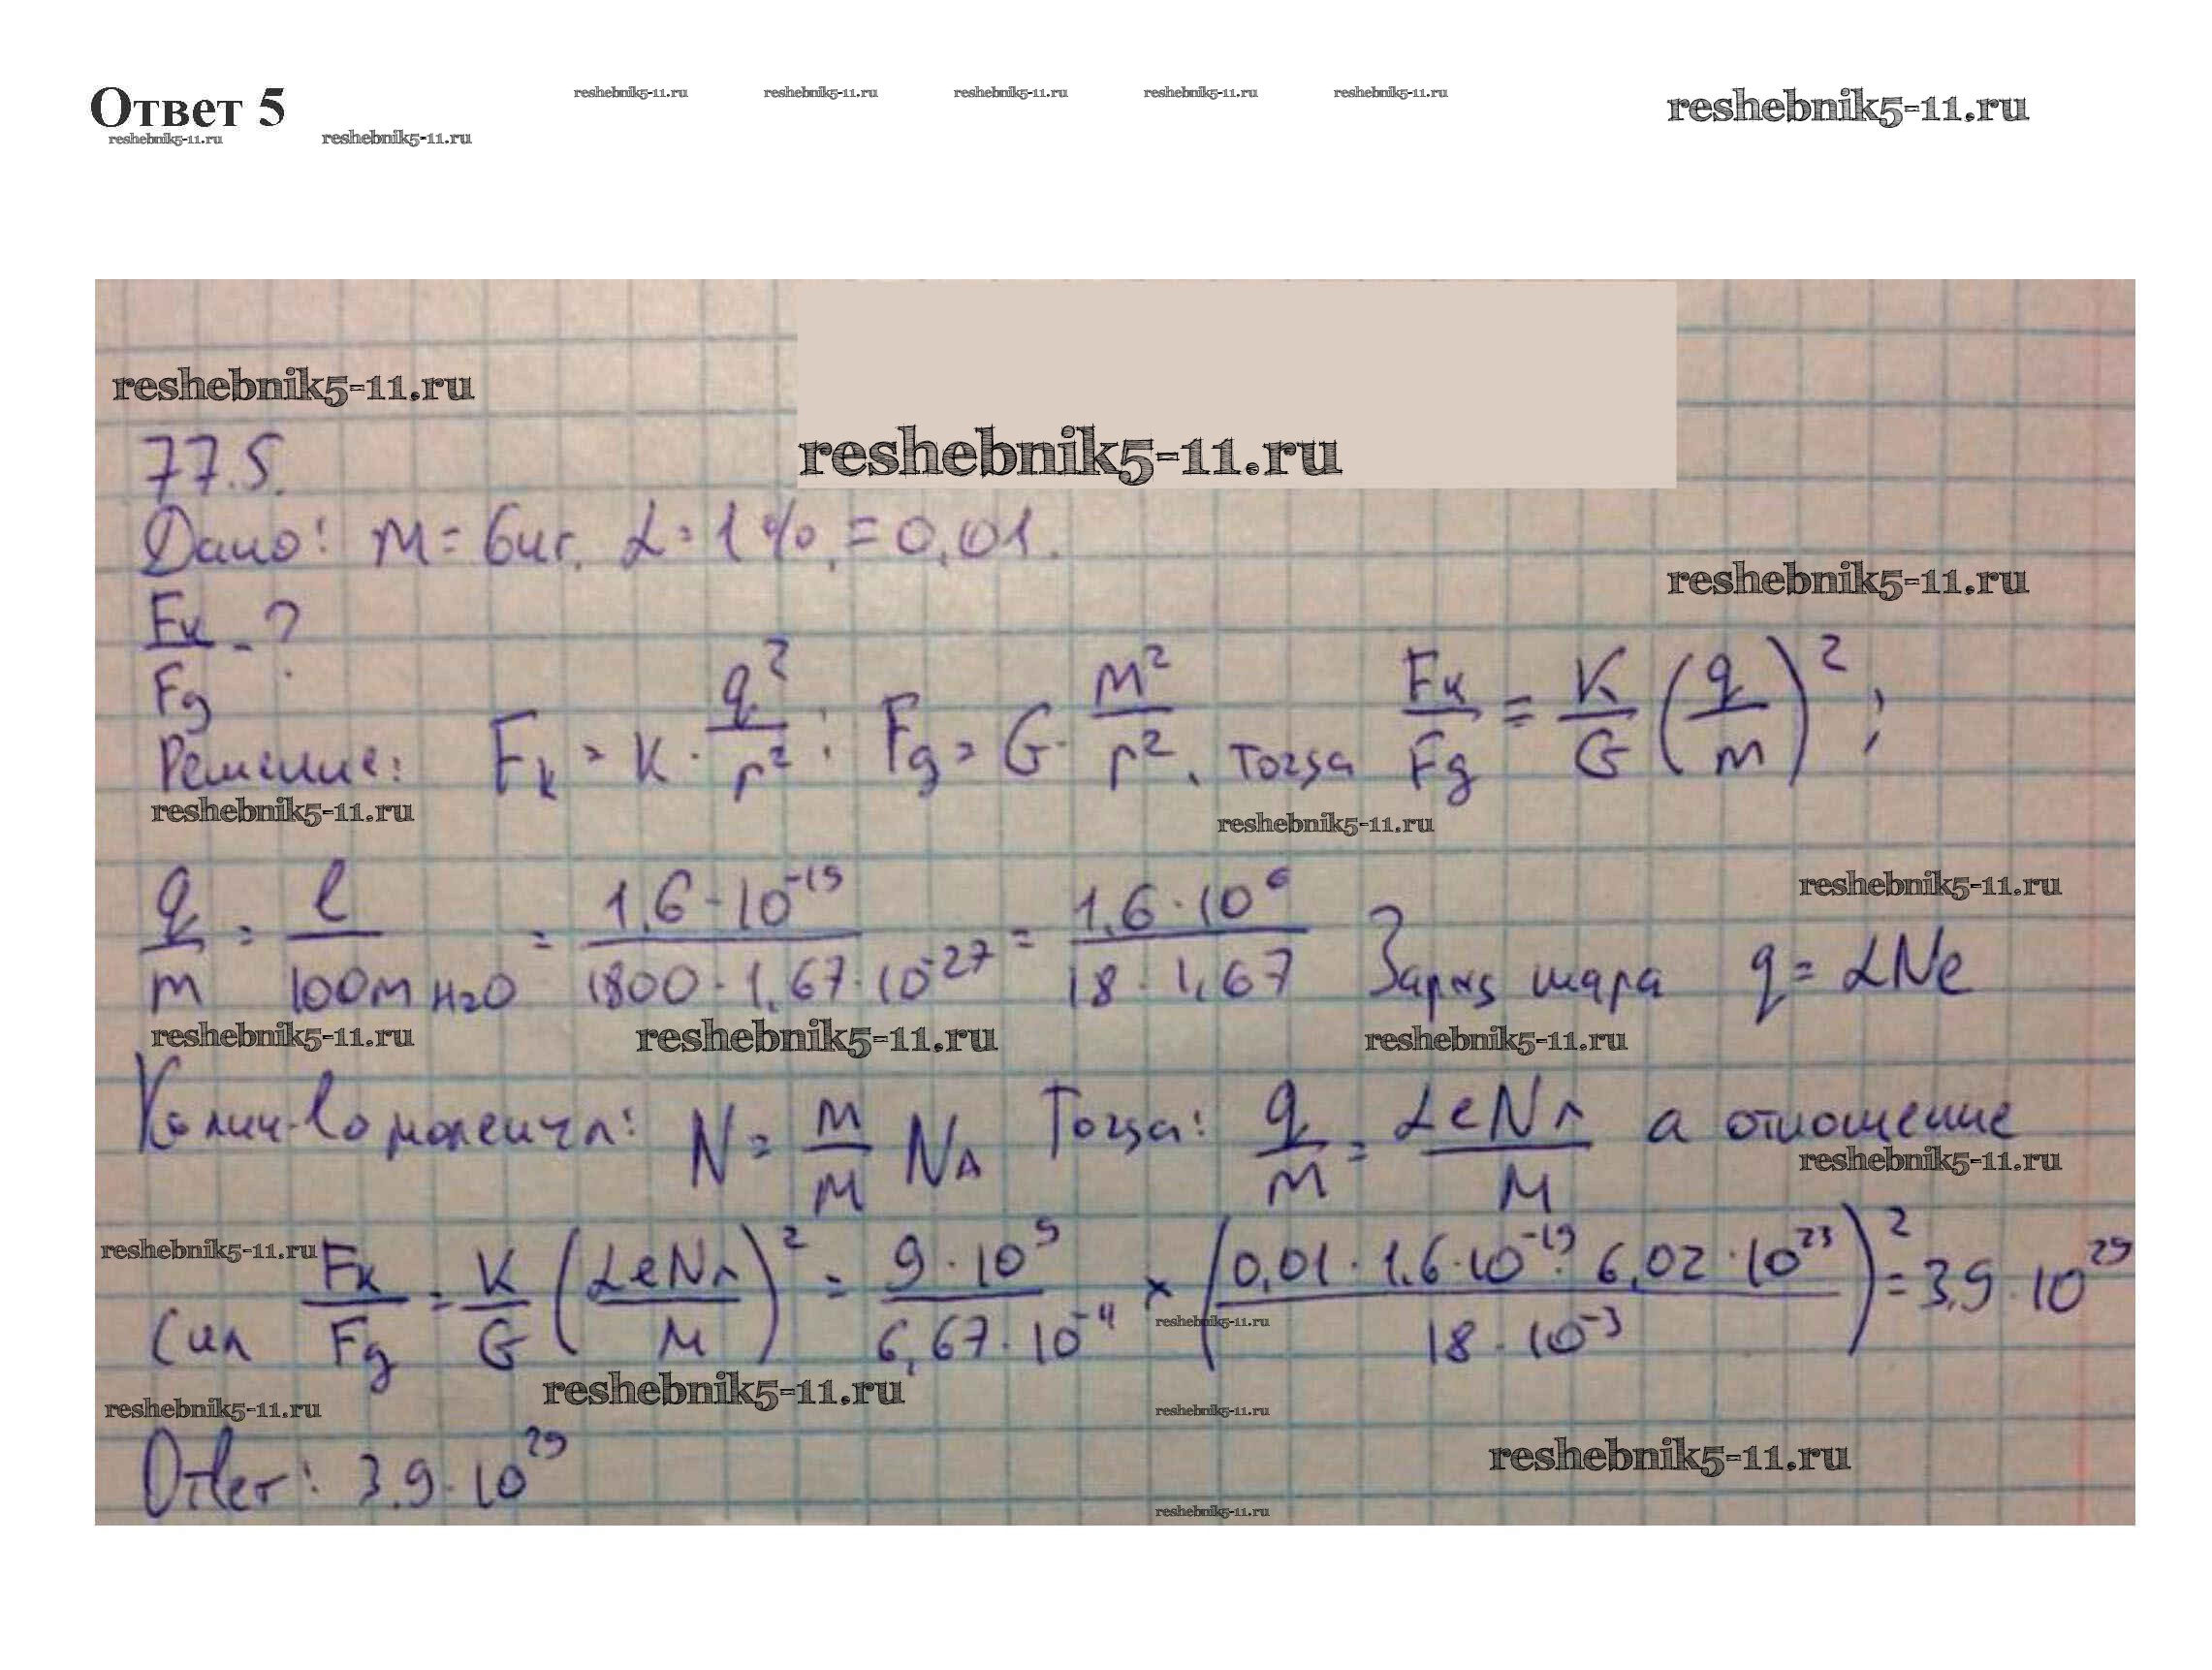 Ответ 5
reshebnik5-11.ru reshebnik5-11.ru reshebnik5-11.ru reshebnik5-11.ru reshebnik5-11.ru
reshebnik5-11.ru
reshebnik5-11.ru reshebnik5-11.ru
reshebnik5-11.ru
reshebnik5-11.ru
77.5.
Дано: m = 6 мг. α = 1%. = 0,01.
reshebnik5-11.ru
Fк/Fg - ?
Решение: Fк = K · q²/r² ; Fg = G · m²/r². Тогда Fк/Fg = K/G (q/m)² ;
reshebnik5-11.ru
reshebnik5-11.ru
reshebnik5-11.ru
q/m = e/100m H2O = 1,6·10⁻¹⁹/1800·1,67·10⁻²⁷ = 1,6·10⁶/18·1,67 Заряд шара q = αNe
reshebnik5-11.ru reshebnik5-11.ru reshebnik5-11.ru
Колич-во молекул: N = m/M NA Тогда: q/m = αeNA/M а отношение
reshebnik5-11.ru
reshebnik5-11.ru
Сил Fк/Fg = K/G (αeNA/M)² = 9·10⁹/6,67·10⁻¹¹ × (0,01·1,6·10⁻¹⁹·6,02·10²³/18·10⁻³)² = 3,9·10²⁹
reshebnik5-11.ru
reshebnik5-11.ru
reshebnik5-11.ru reshebnik5-11.ru
Ответ: 3.9·10²⁹
reshebnik5-11.ru
reshebnik5-11.ru